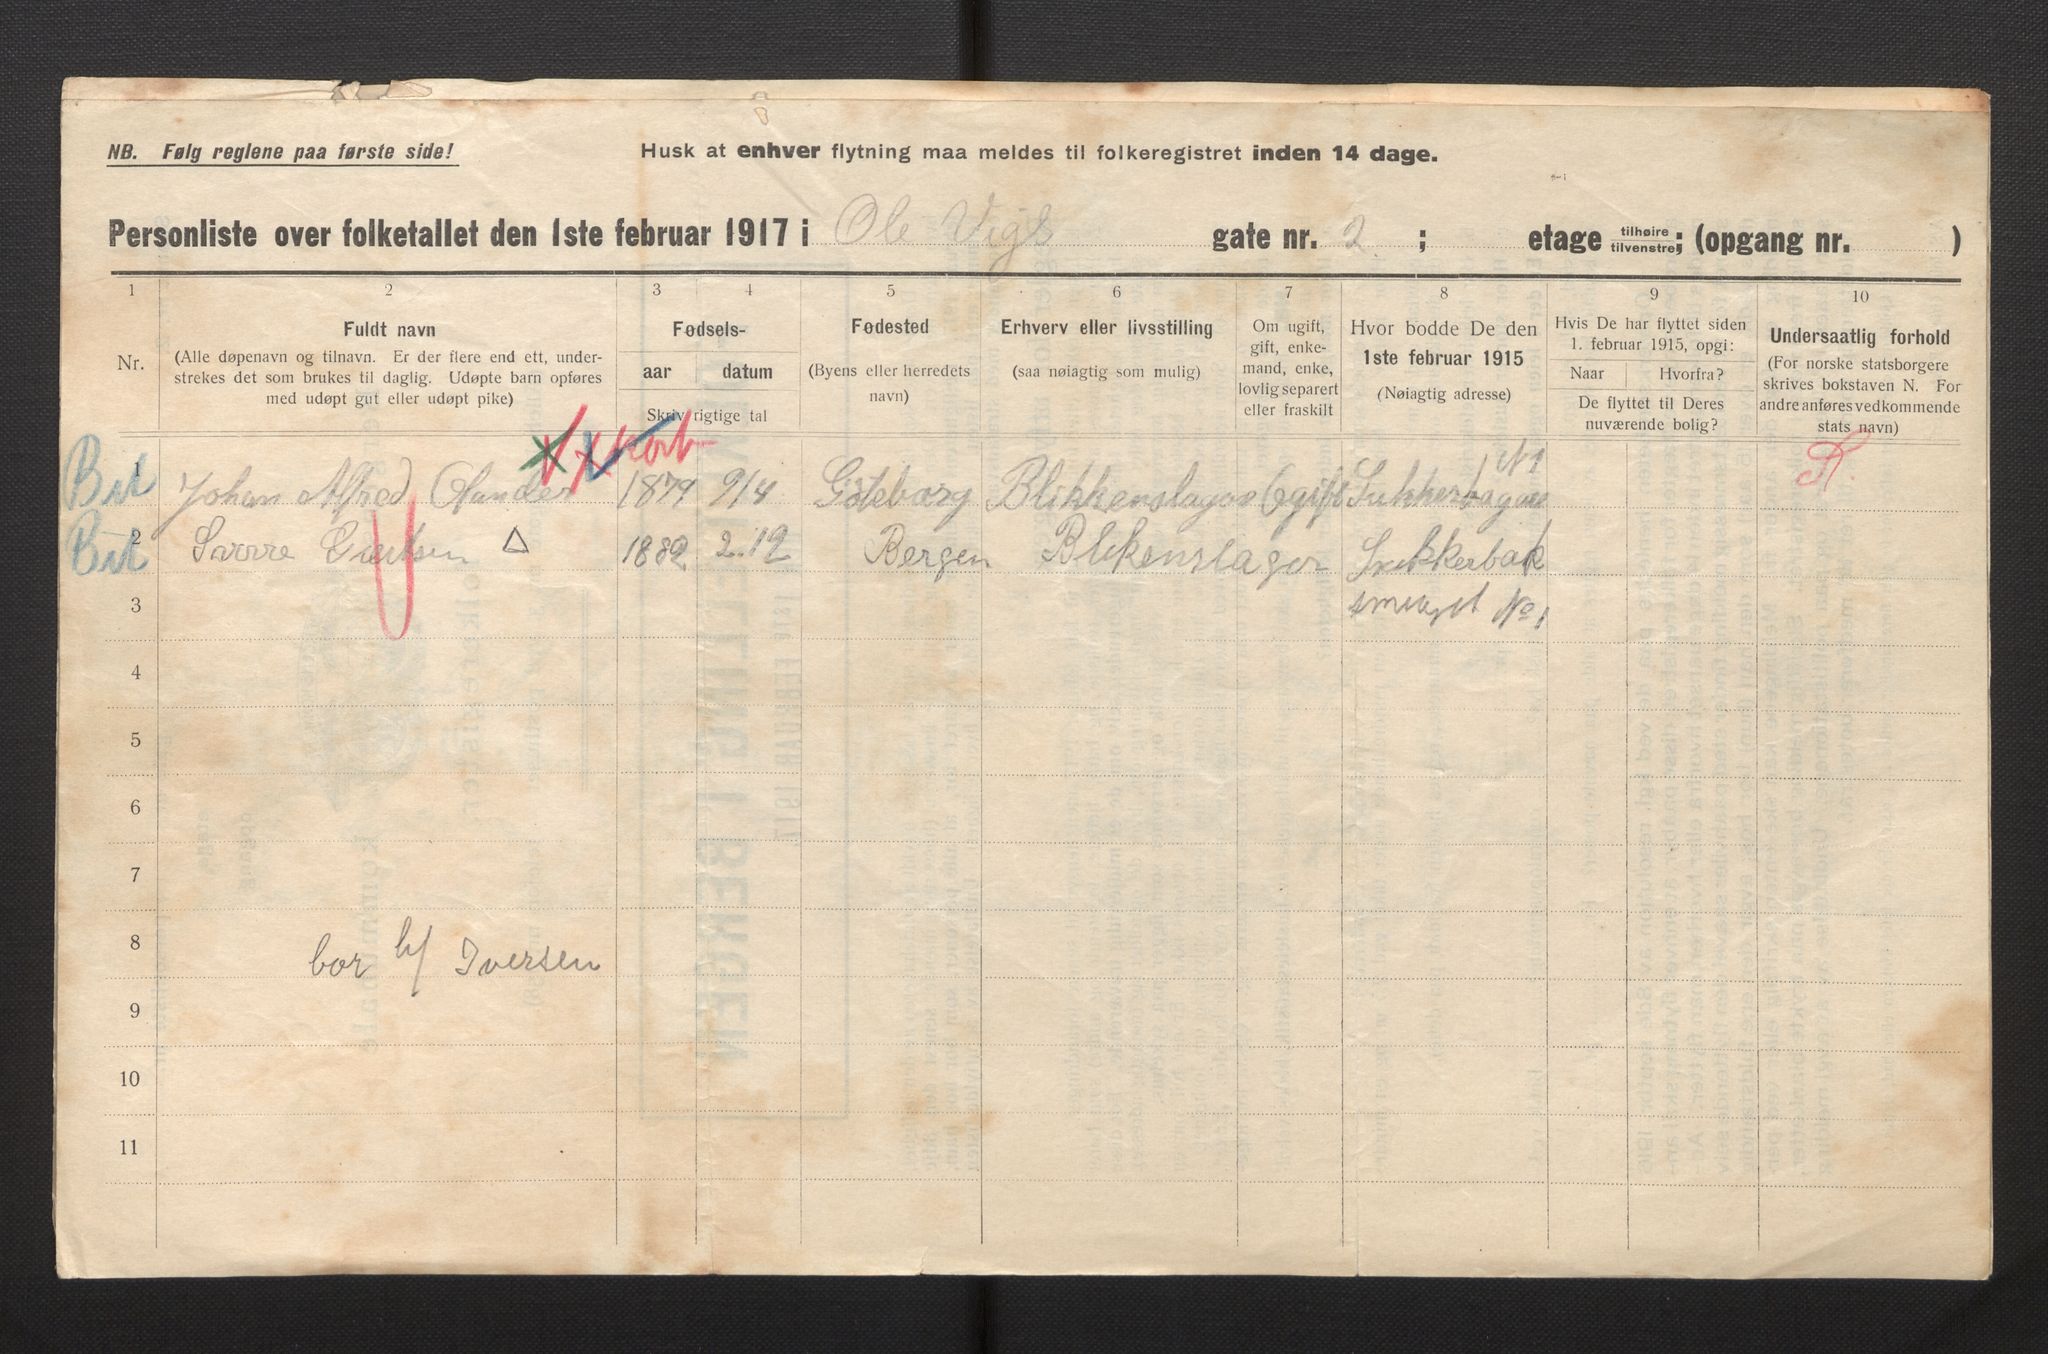 NB. Følg reglene paa første side!
Husk at enhver flytning maa meldes til folkeregistret inden 14 dage.
Personliste over folketallet den 1ste februar 1917 i Ole Vigs gate nr. 2 ; etage tilhøire tilvenstre; (opgang nr. )
1 2 3 4 5 6 7 8 9 10
Nr.
Fuldt navn
(Alle døpenavn og tilnavn. Er der flere end ett, under-
strekes det som brukes til daglig. Udøpte barn opføres
med udøpt gut eller udøpt pike)
Fødsels-
aar datum
Skriv rigtige tal
Fødested
(Byens eller herredets
navn)
Erhverv eller livsstilling
(saa nøiagtig som mulig)
Om ugift,
gift, enke-
mand, enke,
lovlig separert
eller fraskilt
Hvor bodde De den
1ste februar 1915
(Nøiagtig adresse)
Hvis De har flyttet siden
1. februar 1915, opgi:
Naar Hvorfra?
De flyttet til Deres
nuværende bolig?
Undersaatlig forhold
(For norske statsborgere
skrives bokstaven N. For
andre anføres vedkommende
stats navn)
kort
No 1
Bit 1 Johan Alfred 1879 9/4 Göteborg Blikkenslager gift
Bit 2 1882 2.12 Bergen Blikenslager Sukkerbak
3 smuget No 1
4
5
6
7
8 bor h/ Iversen
9
10
11